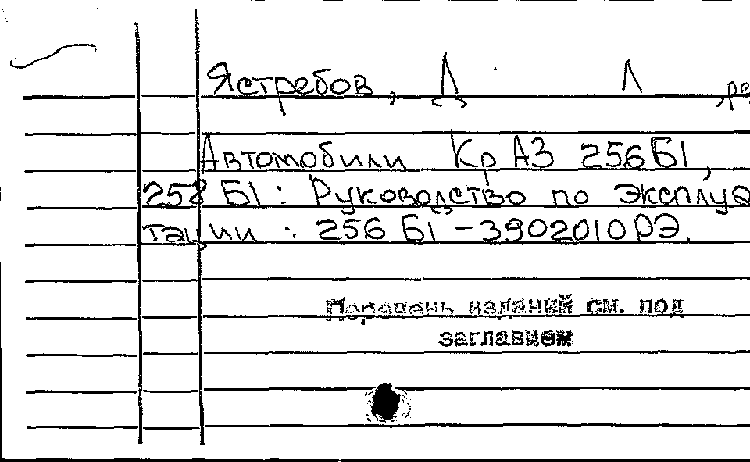 Ястребов, Д Л , ре
Автомобили КрАЗ 256Б1,
258 Б1: Руководство по эксплуа
тации : 256 Б1 - 3902010РЭ.
Перечень изданий см. под
заглавием